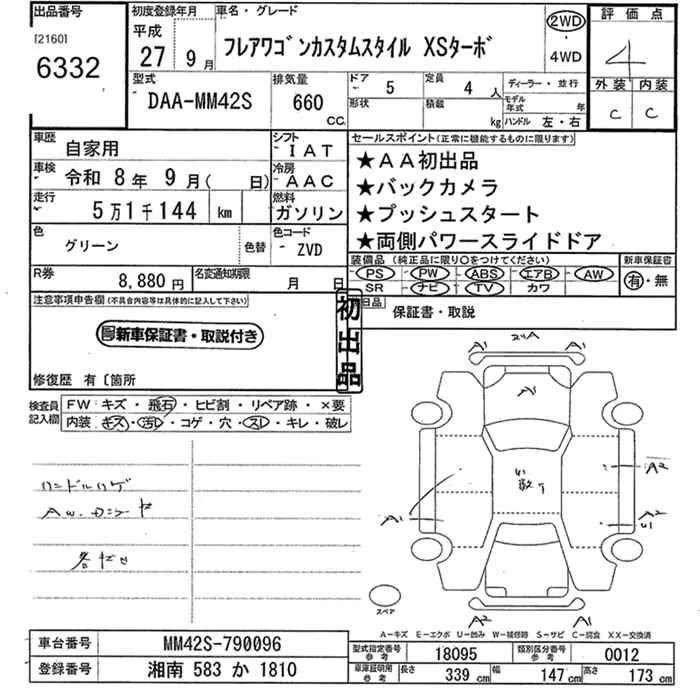 出品番号 初度登録年月 車名・グレード 評価点
[2160] 平成
6332 27年 9月 フレアワゴンカスタムスタイル XSターボ 2WD 4WD 4
型式 排気量 ドア 5 定員 4人 ディーラー・並行 外装 内装
DAA-MM42S 660 CC 形状 積載 kg モデル年式 年 ハンドル 左・右 C C
車歴 自家用 シフト IAT セールスポイント(正常に機能するものに限ります)
車検 令和 8年 9月( 日) 冷房 AAC ★AA初出品
★バックカメラ
走行 5万1千144 km 燃料 ガソリン ★プッシュスタート
色 グリーン 色替 色コード ZVD ★両側パワースライドドア
装備品 (純正品に限り○をつけてください) 新車保証書
R券 8,880円 名変通知期限 月 日 PS PW ABS エアB AW 有・無
SR ナビ TV カワ
注意事項申告欄(不具合内容等は具体的に記入して下さい) 保証書・取説
初出品
新車保証書・取説付き
修復歴 有〔箇所
検査員記入欄 FW:キズ・飛石・ヒビ割・リペア跡・×要
内装:キズ・汚レ・コゲ・穴・スレ・キレ・破レ
A1 A1
A1
ハンドルハゲ
A2
A1 A2
スペア
A2 A1
A-キズ E-エクボ U-凹み W-補修跡 S-サビ C-腐食 XX-交換済
車台番号 MM42S-790096 型式指定番号 参考 18095 類別区分番号 参考 0012
登録番号 湘南 583 か 1810 車庫証明用 参考 長さ 339 cm 幅 147 cm 高さ 173 cm